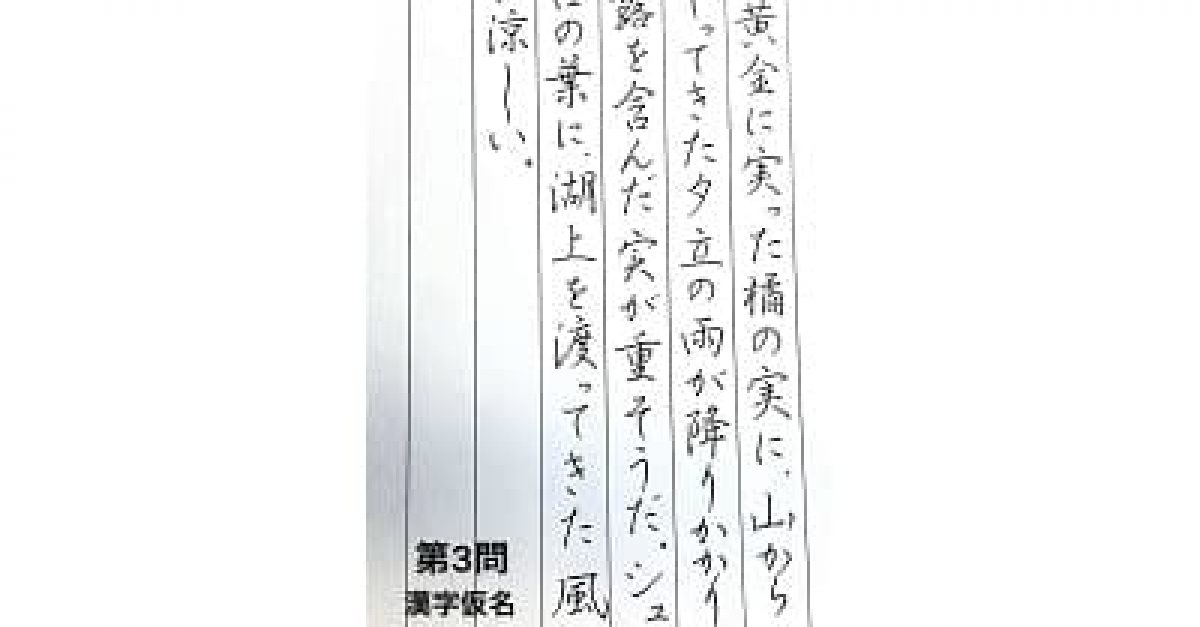 黄金に実った橘の実に、山から
ってきた夕立の雨が降りかかり
露を含んだ実が重そうだ。シュ
の葉に、湖上を渡ってきた風
涼しい。
第3問
漢字仮名